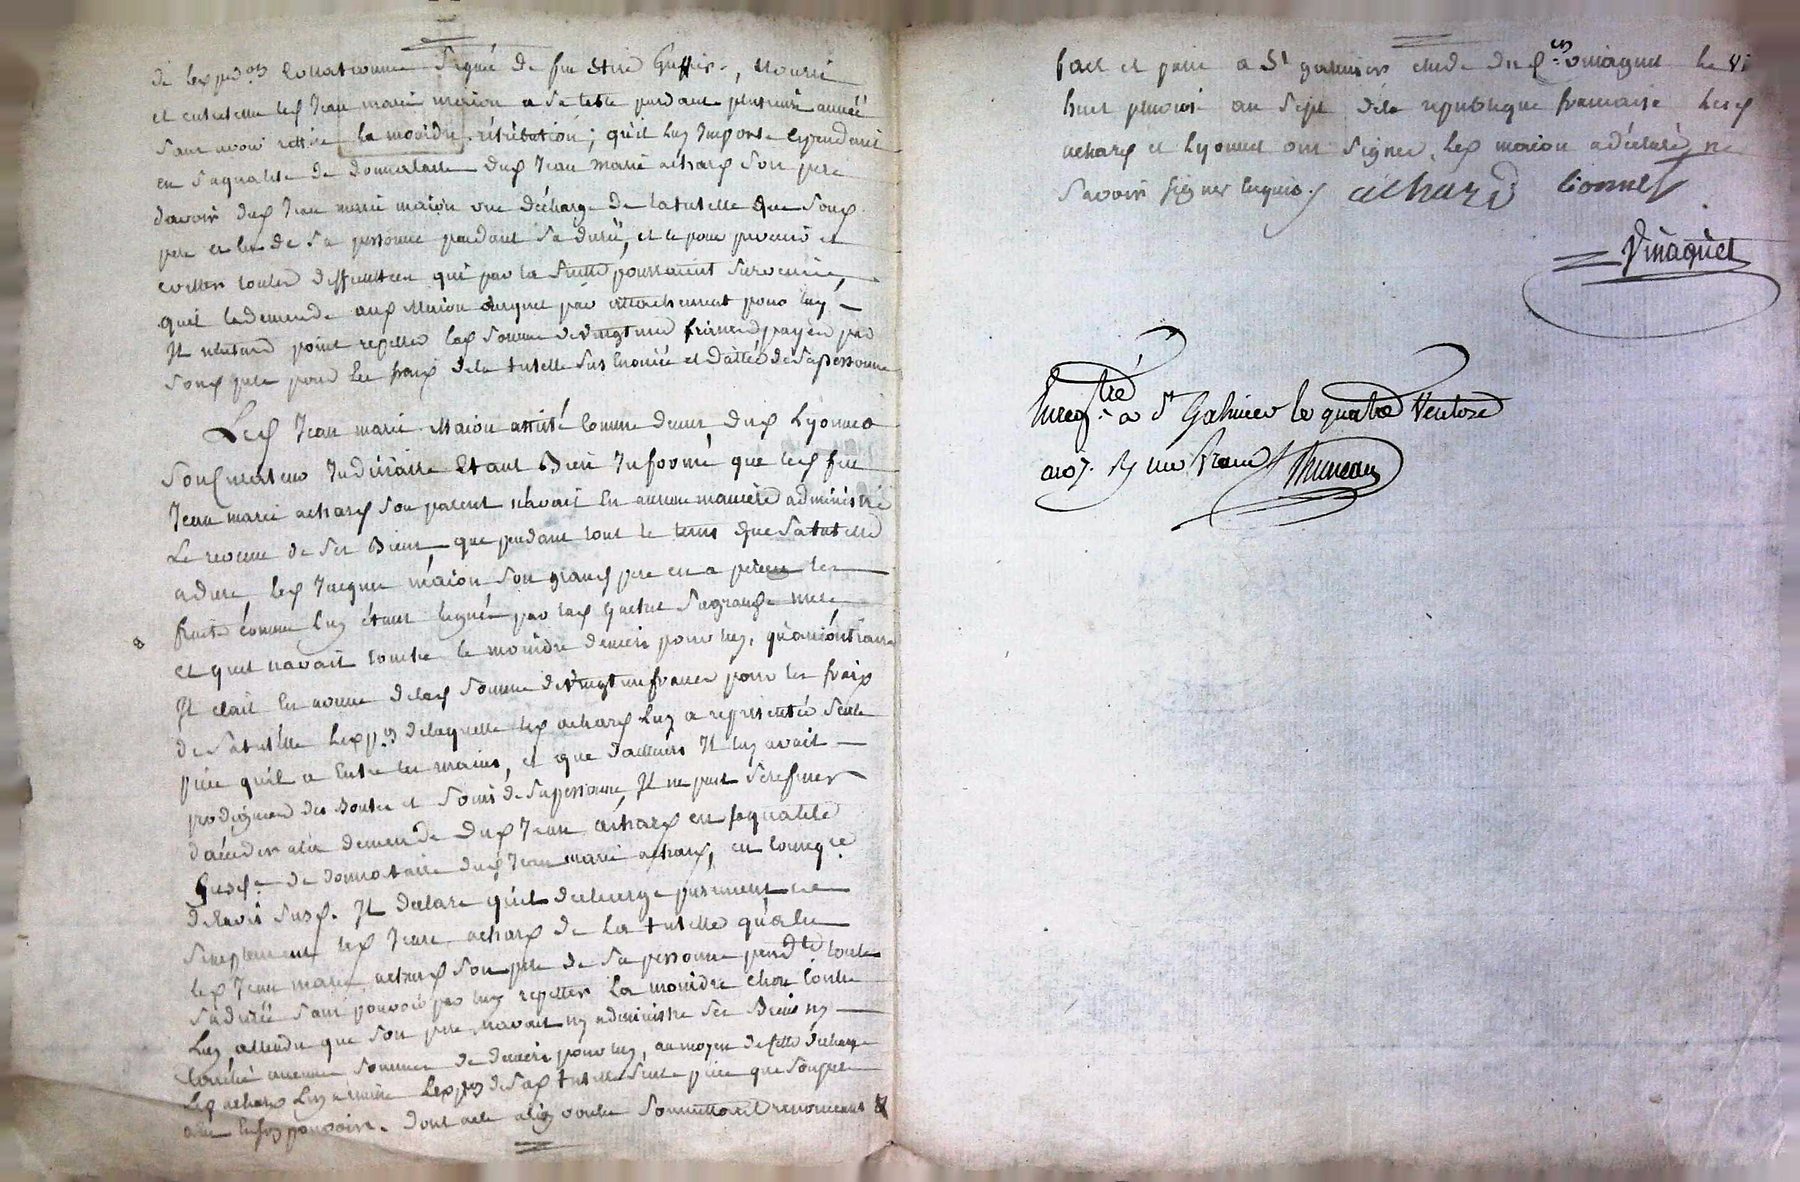 de lexpedon collationnée signée de feu etire Guffier, nourri
et entretenu led Jean marie maion a sa table pendant plusieurs année
sans avoir rettiré la moindre rétribution; qu'il luy Importe cependant
en saqualité de donnataire dud Jean marie achard son pere
davoir dud Jean marie maion une décharge de latutelle que sond
pere a eu de sa personne pendant sa durée, et ce pour prevenir et
eviter toutes difficulteés qui par la suitte pourraient survenir
quil lademende aud Maion auquel par attachement pour luy
Il n'entend point repetter lad somme devingt un francs payés par
sond pere pour les fraix dela tutelle sus Enoncée et datté de sapersonne
Led Jean marie Maion assisté comme dessus dud Lyonnet
sond curateur Judiciaire Etant Bien Informé que led feu
Jean marie achard son parent n'avait En aucune maniere administré
Le revenu de ses Biens, que pendant tout le tems que satutelle
a duré led Jacques maion son grand pere en a percu les
fruits comme luy étant legués par lad sagrande mere
et quil navait touché le moindre deniers pour luy, qu'aucontraire
Il etait En avance de lad somme devingt un francs pour les fraix
de satutelle Lexpon delaquelle led achard luy a representée seule
piece qu'il a Entre les mains, et que dailleurs Il luy avait
prodigués des Bontés et soins de sapersonne, Il ne peut serefuser
dacceder ala demende dud Jean achard en saqualité
de donnataire dud Jean marie achard, en conseqce
Il declare qu'il decharge purement et
simplement led Jean achard de la tutelle qu'a eu
led Jean marie achard son pere de sa personne pendt toute
sadurée sans pouvoir par luy repetter la moindre chose contre
Luy attendu que son pere navait ny administré ses Biens ny
touché aucune somme de deniers pour luy, au moyen de cette decharge
Led achard luy a remis Lexpon de sad tutelle seule piece que sonpere
avu En son pouvoir. Dont acte ainsy voulu soumettant renonceant &
fait et passé a St galmier etude du Cen vinagnet le vingt
huit pluviose an sept dela republique francaise Lesd
achard et Lyonnet ont signé, led maion a déclaré ne
savoir signer Enquis. achard lionnet
Vinagnet
Enregtré a St Galmier le quatre Ventose
an 7. Ry un franc Thuneau